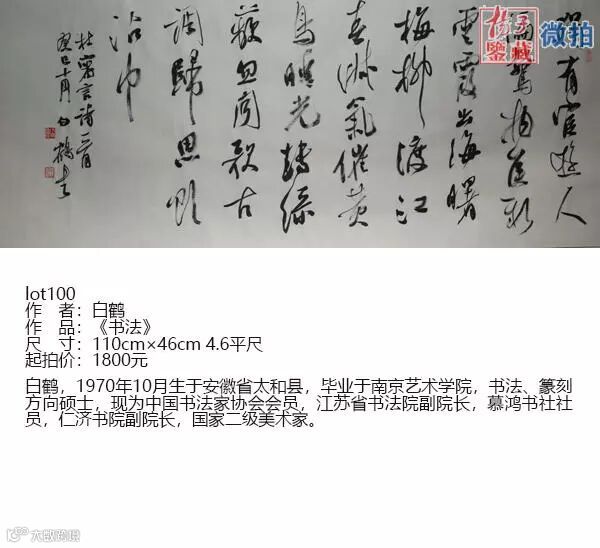 独有宦遊人
偏驚物候新
雲霞出海曙
梅柳渡江
春淑氣催黄
鳥晴光轉緑
蘋忽闻歌古
調歸思欲
沾巾
杜審言詩一首
癸巳十月 白鶴書
扬子鉴藏 微拍
lot100
作 者：白鹤
作 品：《书法》
尺 寸：110cm×46cm 4.6平尺
起拍价：1800元
白鹤，1970年10月生于安徽省太和县，毕业于南京艺术学院，书法、篆刻
方向硕士，现为中国书法家协会会员，江苏省书法院副院长，慕鸿书社社
员，仁济书院副院长，国家二级美术家。
大数跨境